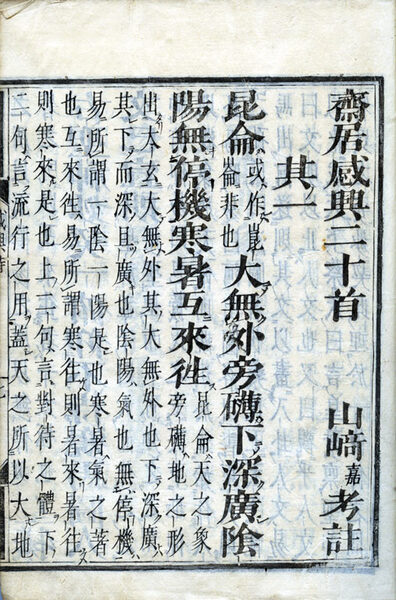 齋居感興二十首 山﨑嘉考註
其一
昆侖或作崑崙非也大無外旁礴下深廣陰
陽無停機寒暑互來徃昆侖天之象旁礴地之形
出太玄大無外其大無外也下深廣
其下而深且廣也陰陽氣也無停機
易所謂一陰一陽是也寒暑氣之著
也互來徃易所謂寒徃則暑來暑徃
則寒來是也上二句言對待之體下
二句言流行之用蓋天之所以大地